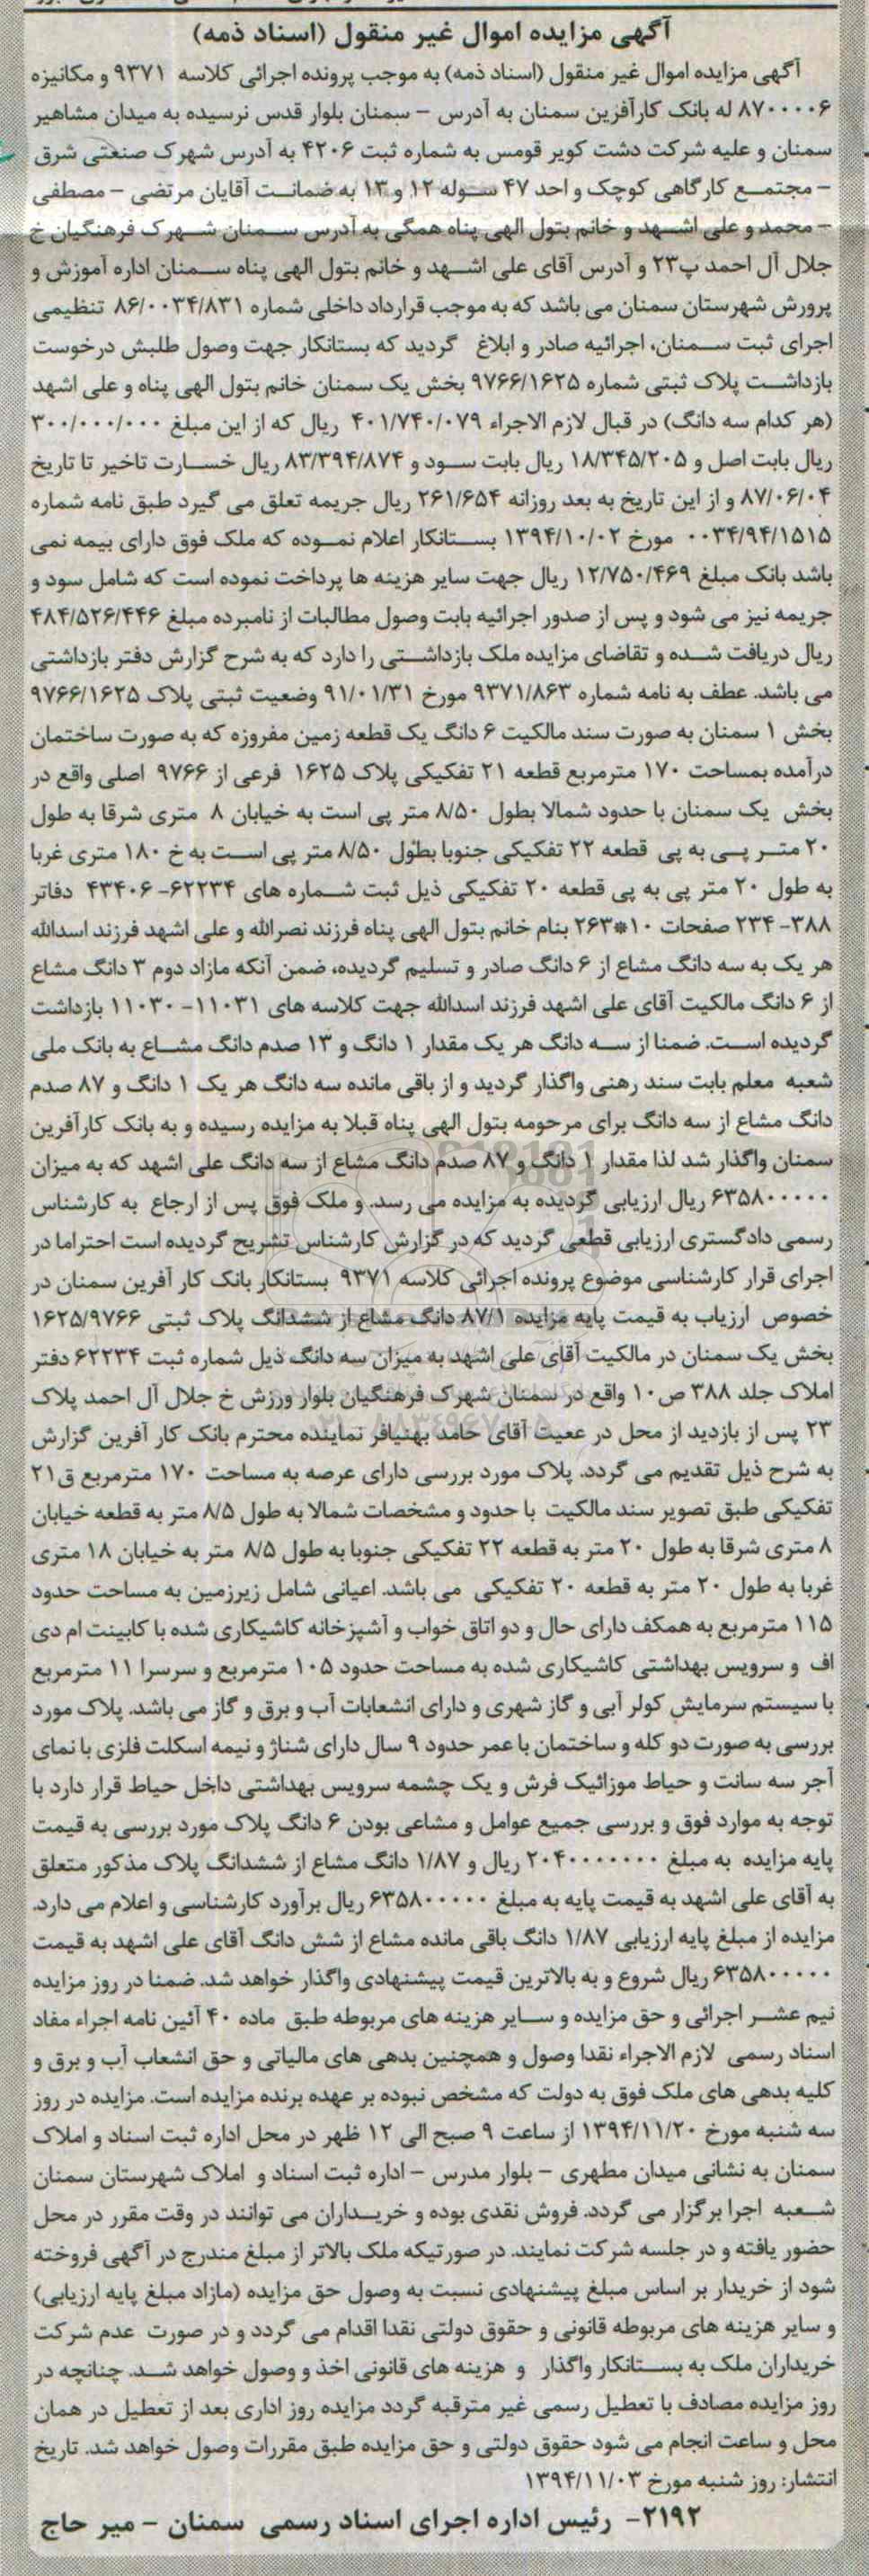 آگهی مزایده اموال غیر منقول (اسناد ذمه)
آگهی مزایده اموال غیر منقول (اسناد ذمه) به موجب پرونده اجرائی کلاسه ۹۳۷۱ و مکانیزه
۸۷۰۰۰۰۶ له بانک کارآفرین سمنان به آدرس – سمنان بلوار قدس نرسیده به میدان مشاهیر
سمنان و علیه شرکت دشت کویر قومس به شماره ثبت ۴۲۰۶ به آدرس شهرک صنعتی شرق
– مجتمع کارگاهی کوچک و احد ۴۷ سوله ۱۲ و ۱۳ به ضمانت آقایان مرتضی – مصطفی
– محمد و علی اشهد و خانم بتول الهی پناه همگی به آدرس سمنان شهرک فرهنگیان خ
جلال آل احمد پ۲۳ و آدرس آقای علی اشهد و خانم بتول الهی پناه سمنان اداره آموزش و
پرورش شهرستان سمنان می باشد که به موجب قرارداد داخلی شماره ۸۶/۰۰۳۴/۸۳۱ تنظیمی
اجرای ثبت سمنان، اجرائیه صادر و ابلاغ گردید که بستانکار جهت وصول طلبش درخوست
بازداشت پلاک ثبتی شماره ۹۷۶۶/۱۶۲۵ بخش یک سمنان خانم بتول الهی پناه و علی اشهد
(هر کدام سه دانگ) در قبال لازم الاجراء ۴۰۱/۷۴۰/۰۷۹ ریال که از این مبلغ ۳۰۰/۰۰۰/۰۰۰
ریال بابت اصل و ۱۸/۳۴۵/۲۰۵ ریال بابت سود و ۸۳/۳۹۴/۸۷۴ ریال خسارت تاخیر تا تاریخ
۸۷/۰۶/۰۴ و از این تاریخ به بعد روزانه ۲۶۱/۶۵۴ ریال جریمه تعلق می گیرد طبق نامه شماره
۰۰۳۴/۹۴/۱۵۱۵ مورخ ۱۳۹۴/۱۰/۰۲ بستانکار اعلام نموده که ملک فوق دارای بیمه نمی
باشد بانک مبلغ ۱۲/۷۵۰/۴۶۹ ریال جهت سایر هزینه ها پرداخت نموده است که شامل سود و
جریمه نیز می شود و پس از صدور اجرائیه بابت وصول مطالبات از نامبرده مبلغ ۴۸۴/۵۲۶/۴۴۶
ریال دریافت شده و تقاضای مزایده ملک بازداشتی را دارد که به شرح گزارش دفتر بازداشتی
می باشد. عطف به نامه شماره ۹۳۷۱/۸۶۳ مورخ ۹۱/۰۱/۳۱ وضعیت ثبتی پلاک ۹۷۶۶/۱۶۲۵
بخش ۱ سمنان به صورت سند مالکیت ۶ دانگ یک قطعه زمین مفروزه که به صورت ساختمان
درآمده بمساحت ۱۷۰ مترمربع قطعه ۲۱ تفکیکی پلاک ۱۶۲۵ فرعی از ۹۷۶۶ اصلی واقع در
بخش یک سمنان با حدود شمالا بطول ۸/۵۰ متر پی است به خیابان ۸ متری شرقا به طول
۲۰ متر پی به پی قطعه ۲۲ تفکیکی جنوبا بطول ۸/۵۰ متر پی است به خ ۱۸۰ متری غربا
به طول ۲۰ متر پی به پی قطعه ۲۰ تفکیکی ذیل ثبت شماره های ۶۲۲۳۴– ۴۳۴۰۶ دفاتر
۳۸۸– ۲۳۴ صفحات ۱۰*۲۶۳ بنام خانم بتول الهی پناه فرزند نصرالله و علی اشهد فرزند اسدالله
هر یک به سه دانگ مشاع از ۶ دانگ صادر و تسلیم گردیده، ضمن آنکه مازاد دوم ۳ دانگ مشاع
از ۶ دانگ مالکیت آقای علی اشهد فرزند اسدالله جهت کلاسه های ۱۱۰۳۱– ۱۱۰۳۰ بازداشت
گردیده است. ضمنا از سه دانگ هر یک مقدار ۱ دانگ و ۱۳ صدم دانگ مشاع به بانک ملی
شعبه معلم بابت سند رهنی واگذار گردید و از باقی مانده سه دانگ هر یک ۱ دانگ و ۸۷ صدم
دانگ مشاع از سه دانگ برای مرحومه بتول الهی پناه قبلا به مزایده رسیده و به بانک کارآفرین
سمنان واگذار شد لذا مقدار ۱ دانگ و ۸۷ صدم دانگ مشاع از سه دانگ علی اشهد که به میزان
۶۳۵۸۰۰۰۰۰ ریال ارزیابی گردیده به مزایده می رسد. و ملک فوق پس از ارجاع به کارشناس
رسمی دادگستری ارزیابی قطعی گردید که در گزارش کارشناس تشریح گردیده است احتراما در
اجرای قرار کارشناسی موضوع پرونده اجرائی کلاسه ۹۳۷۱ بستانکار بانک کار آفرین سمنان در
خصوص ارزیاب به قیمت پایه مزایده ۸۷/۱ دانگ مشاع از ششدانگ پلاک ثبتی ۱۶۲۵/۹۷۶۶
بخش یک سمنان در مالکیت آقای علی اشهد به میزان سه دانگ ذیل شماره ثبت ۶۲۲۳۴ دفتر
املاک جلد ۳۸۸ ص۱۰ واقع در سمنان شهرک فرهنگیان بلوار ورزش خ جلال آل احمد پلاک
۲۳ پس از بازدید از محل در معیت آقای حامد بهنیافر نماینده محترم بانک کار آفرین گزارش
به شرح ذیل تقدیم می گردد. پلاک مورد بررسی دارای عرصه به مساحت ۱۷۰ مترمربع ق۲۱
تفکیکی طبق تصویر سند مالکیت با حدود و مشخصات شمالا به طول ۸/۵ متر به قطعه خیابان
۸ متری شرقا به طول ۲۰ متر به قطعه ۲۲ تفکیکی جنوبا به طول ۸/۵ متر به خیابان ۱۸ متری
غربا به طول ۲۰ متر به قطعه ۲۰ تفکیکی می باشد. اعیانی شامل زیرزمین به مساحت حدود
۱۱۵ مترمربع به همکف دارای حال و دو اتاق خواب و آشپزخانه کاشیکاری شده با کابینت ام دی
اف و سرویس بهداشتی کاشیکاری شده به مساحت حدود ۱۰۵ مترمربع و سرسرا ۱۱ مترمربع
با سیستم سرمایش کولر آبی و گاز شهری و دارای انشعابات آب و برق و گاز می باشد. پلاک مورد
بررسی به صورت دو کله و ساختمان با عمر حدود ۹ سال دارای شناژ و نیمه اسکلت فلزی با نمای
آجر سه سانت و حیاط موزائیک فرش و یک چشمه سرویس بهداشتی داخل حیاط قرار دارد با
توجه به موارد فوق و بررسی جمیع عوامل و مشاعی بودن ۶ دانگ پلاک مورد بررسی به قیمت
پایه مزایده به مبلغ ۲۰۴۰۰۰۰۰۰۰ ریال و ۱/۸۷ دانگ مشاع از ششدانگ پلاک مذکور متعلق
به آقای علی اشهد به قیمت پایه به مبلغ ۶۳۵۸۰۰۰۰۰ ریال برآورد کارشناسی و اعلام می دارد.
مزایده از مبلغ پایه ارزیابی ۱/۸۷ دانگ باقی مانده مشاع از شش دانگ آقای علی اشهد به قیمت
۶۳۵۸۰۰۰۰۰ ریال شروع و به بالاترین قیمت پیشنهادی واگذار خواهد شد. ضمنا در روز مزایده
نیم عشر اجرائی و حق مزایده و سایر هزینه های مربوطه طبق ماده ۴۰ آئین نامه اجراء مفاد
اسناد رسمی لازم الاجراء نقدا وصول و همچنین بدهی های مالیاتی و حق انشعاب آب و برق و
کلیه بدهی های ملک فوق به دولت که مشخص نبوده بر عهده برنده مزایده است. مزایده در روز
سه شنبه مورخ ۱۳۹۴/۱۱/۲۰ از ساعت ۹ صبح الی ۱۲ ظهر در محل اداره ثبت اسناد و املاک
سمنان به نشانی میدان مطهری – بلوار مدرس – اداره ثبت اسناد و املاک شهرستان سمنان
شعبه اجرا برگزار می گردد. فروش نقدی بوده و خریداران می توانند در وقت مقرر در محل
حضور یافته و در جلسه شرکت نمایند. در صورتیکه ملک بالاتر از مبلغ مندرج در آگهی فروخته
شود از خریدار بر اساس مبلغ پیشنهادی نسبت به وصول حق مزایده (مازاد مبلغ پایه ارزیابی)
و سایر هزینه های مربوطه قانونی و حقوق دولتی نقدا اقدام می گردد و در صورت عدم شرکت
خریداران ملک به بستانکار واگذار و هزینه های قانونی اخذ و وصول خواهد شد. چنانچه در
روز مزایده مصادف با تعطیل رسمی غیر مترقبه گردد مزایده روز اداری بعد از تعطیل در همان
محل و ساعت انجام می شود حقوق دولتی و حق مزایده طبق مقررات وصول خواهد شد. تاریخ
انتشار: روز شنبه مورخ ۱۳۹۴/۱۱/۰۳
۲۱۹۲– رئیس اداره اجرای اسناد رسمی سمنان – میر حاج